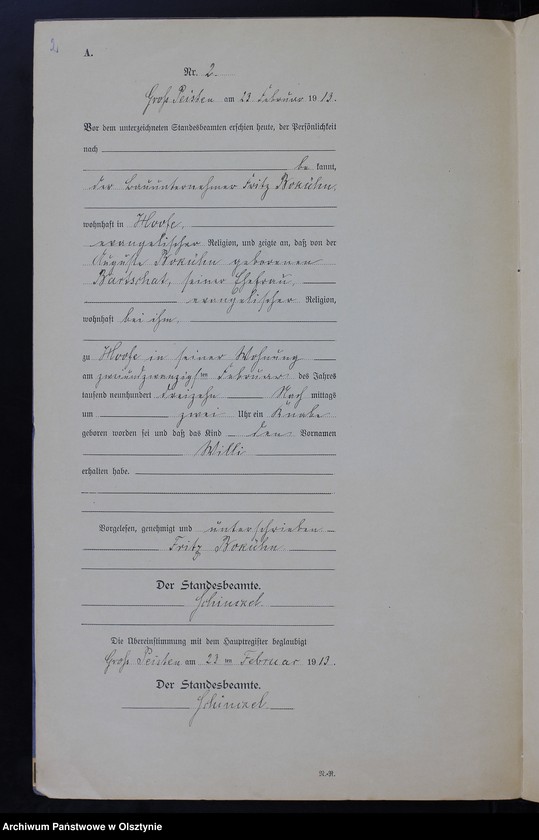 2.
A.
Nr. 2.
Groß Peisten am 23 Februar 1913.
Vor dem unterzeichneten Standesbeamten erschien heute, der Persönlichkeit
nach
be kannt,
der Bauunternehmer Fritz Bokühn,
wohnhaft in Hoofe,
evangelischer Religion, und zeigte an, daß von der
Auguste Bokühn geborenen
Bartschat, seiner Ehefrau,
evangelischer Religion,
wohnhaft bei ihm
zu Hoofe in seiner Wohnung
am zweiundzwanzigsten Februar des Jahres
tausend neunhundert dreizehn Nach mittags
um zwei Uhr ein Knabe
geboren worden sei und daß das Kind den Vornamen
Willi
erhalten habe.
Vorgelesen, genehmigt und unterschrieben
Fritz Bokühn
Der Standesbeamte.
Schinkel.
Die Übereinstimmung mit dem Hauptregister beglaubigt
Groß Peisten am 23 ten Februar 1913.
Der Standesbeamte.
Schinkel.
Archiwum Państwowe w Olsztynie